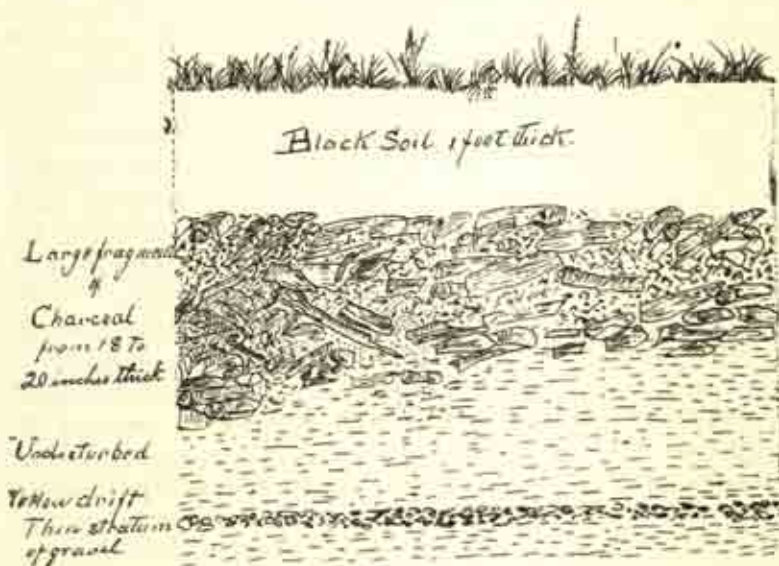 Black Soil 1 foot thick.
Large fragments
of
Charcoal
from 18 to
20 inches thick
Undisturbed
Yellow drift
Thin stratum
of gravel